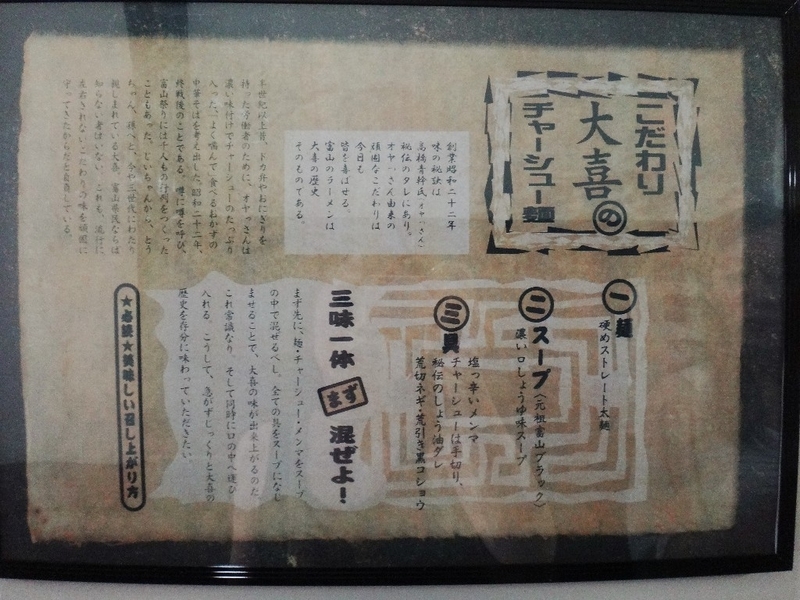 こだわり
大喜の
チャーシュー麺
創業昭和二十二年
味の秘訣は
高橋青幹氏(オヤっさん)
秘伝のタレにあり。
オヤっさん由来の
頑固なこだわりは
今日も
皆を喜ばせる。
富山のラーメンは
大喜の歴史
そのものである。
半世紀以上昔、ドカ弁やおにぎりを
持った労働者のために、オヤっさんは
濃い味付けでチャーシューのたっぷり
入った「よく噛んで食べるおかずの
中華そば」を考え出した。昭和二十二年、
終戦後のことである。噂に噂を呼び、
富山祭りには千人もの行列をつくった
こともあった。じいちゃんから、とう
ちゃん、孫へと、今や三世代にわたり
親しまれている大喜。富山県民ならば
知らない者はいない。これも、流行に
左右されないこだわりの味を頑固に
守ってきたからだと自負している。
一 麺
硬めストレート太麺
二 スープ〈元祖富山ブラック〉
濃い口しょうゆ味スープ
三 具
塩っ辛いメンマ
チャーシューは手切り、
秘伝のしょう油ダレ
荒切ネギ・荒引き黒コショウ
三味一体 まず 混ぜよ!
まず先に、麺・チャーシュー・メンマをスープ
の中で混ぜるべし。全ての具をスープになじ
ませることで、大喜の味が出来上がるのだ。
これ常識なり。そして同時に口の中へ運び
入れる。こうして、急がずじっくりと大喜の
歴史を存分に味わっていただきたい。
★必読★美味しい召し上がり方